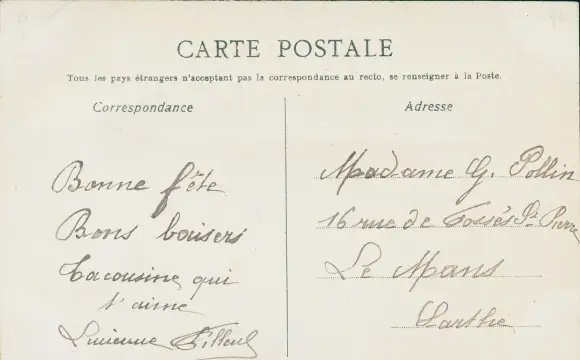 CARTE POSTALE
Tous les pays étrangers n'acceptent pas la correspondance au recto, se renseigner à la Poste.
Correspondance
Bonne fête
Bons baisers
Ta cousine qui
t'aime
Lucienne Tilleul
Adresse
Madame G. Pollin
16 rue de Fossés St Pierre
Le Mans
Sarthe